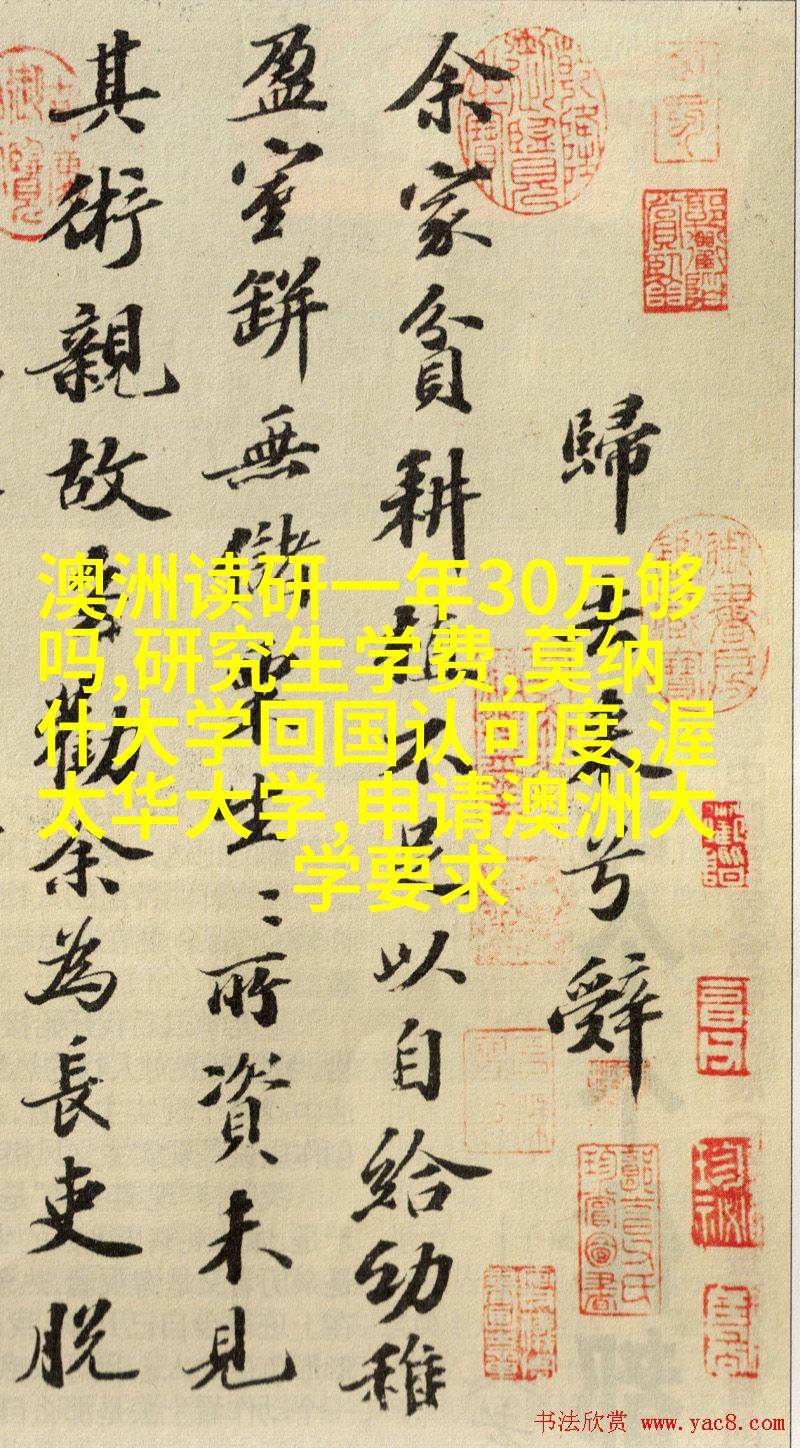 歸去來兮辭
余家貧耕植不足以自給幼稚
盈室缾無儲粟生〻所資未見
其術親故多勸余為長吏脫
澳洲读研一年30万够
吗,研究生学费,莫纳
什大学回国认可度,渥
太华大学,申请澳洲大
学要求
书法欣赏 www.yac8.com